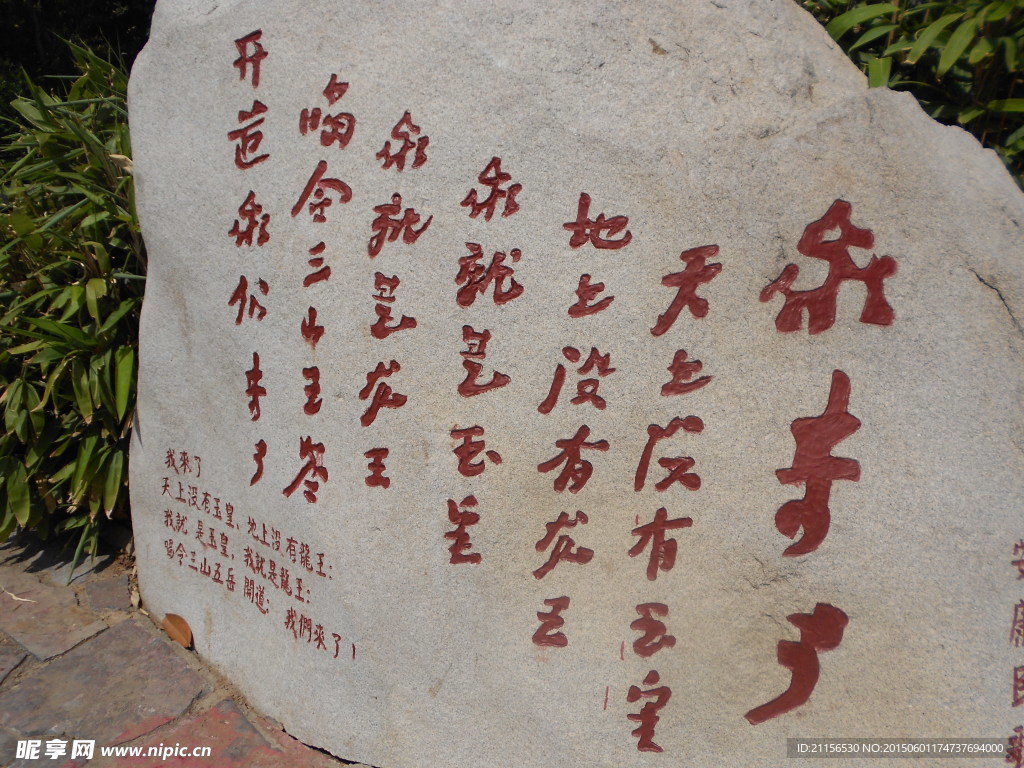 安康民歌
我来了
天上没有玉皇
地上没有龙王
我就是玉皇
我就是龙王
喝令三山五岺
开道我们来了
我來了
天上没有玉皇，地上没有龍王：
我就是玉皇，我就是龍王：
喝令三山五岳 開道：我們來了！
昵享网 www.nipic.cn
ID:21156530 NO:20150601174737694000